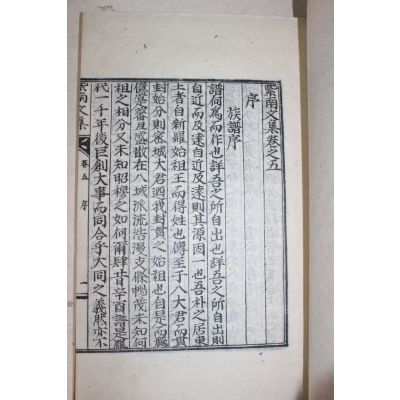 南文集卷之五
序
族譜序
譜何爲而作也詳吾之所自出也詳吾之所自出則
自近而及遠自近而及遠則其源固一也吾朴之居東
土者自新羅始祖王而得姓也傳至于八大君而貫
封始分則密城大君迺我封貫之始祖也自是而厥
億寧且盛散在八域派流浩漫支條暢茂未知何
祖之相分又未知昭穆之如何爾肆昔辛酉譜是厥
代一千年後巨創大事而同合乎大同之義然亦不
南文集 卷五 序 一